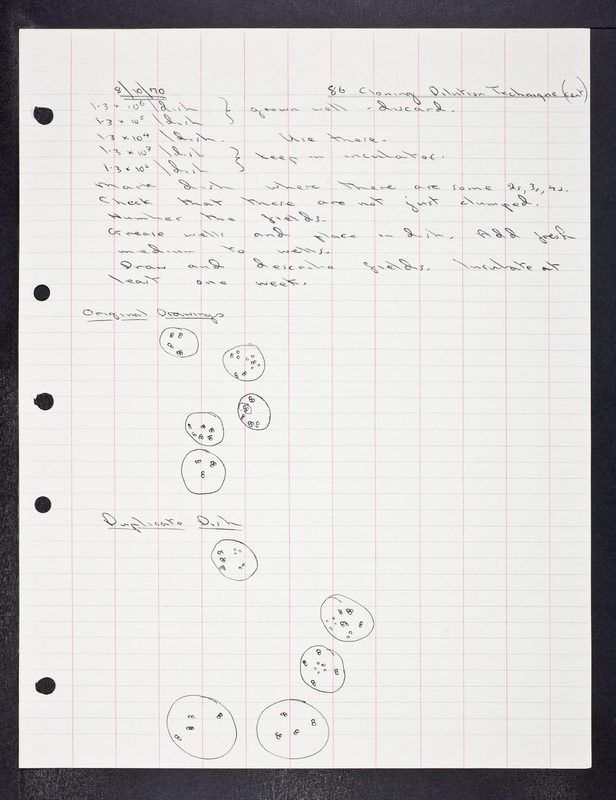 8/10/70 86 Cloning Dilution Technique (cont)
1.3 × 10⁶ / dish } grown well - discard.
1.3 × 10⁵ / dish
1.3 × 10⁴ / dish. Use these.
1.3 × 10³ / dish } keep in incubator.
1.3 × 10² / dish
Mark dish where there are some 2s, 3s, 4s.
Check that these are not just clumped.
Number the fields.
Grease wells and place in dish. Add fresh
medium to wells.
Draw and describe fields. Incubate at
least one week.
Original Drawings
Duplicate Dish